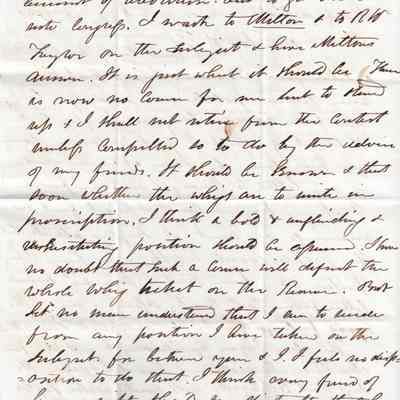 into Congress. I wrote to Milton & to R W
Taylor on the subject & have Miltons
answer. It is just what it should be. There
is now no course for me but to stand
up & I shall not retire from the contest
unless compelled so to do by the advice
of my friends. It should be known & that
soon whether the whigs are to unite in
proscription. I think a bold & unflinching &
unhesitating position should be assumed. I have
no doubt that such a course will defeat the
whole whig ticket on the Reserve. But
let no man understand that I am to recede
from any position I have taken on the
subject, for between you & I. I feel no disp-
osition to do that. I think every friend of